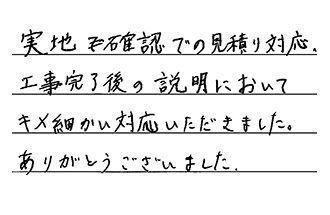 実地で確認での見積り対応、
工事完了後の説明において
キメ細かい対応いただきました。
ありがとうございました.